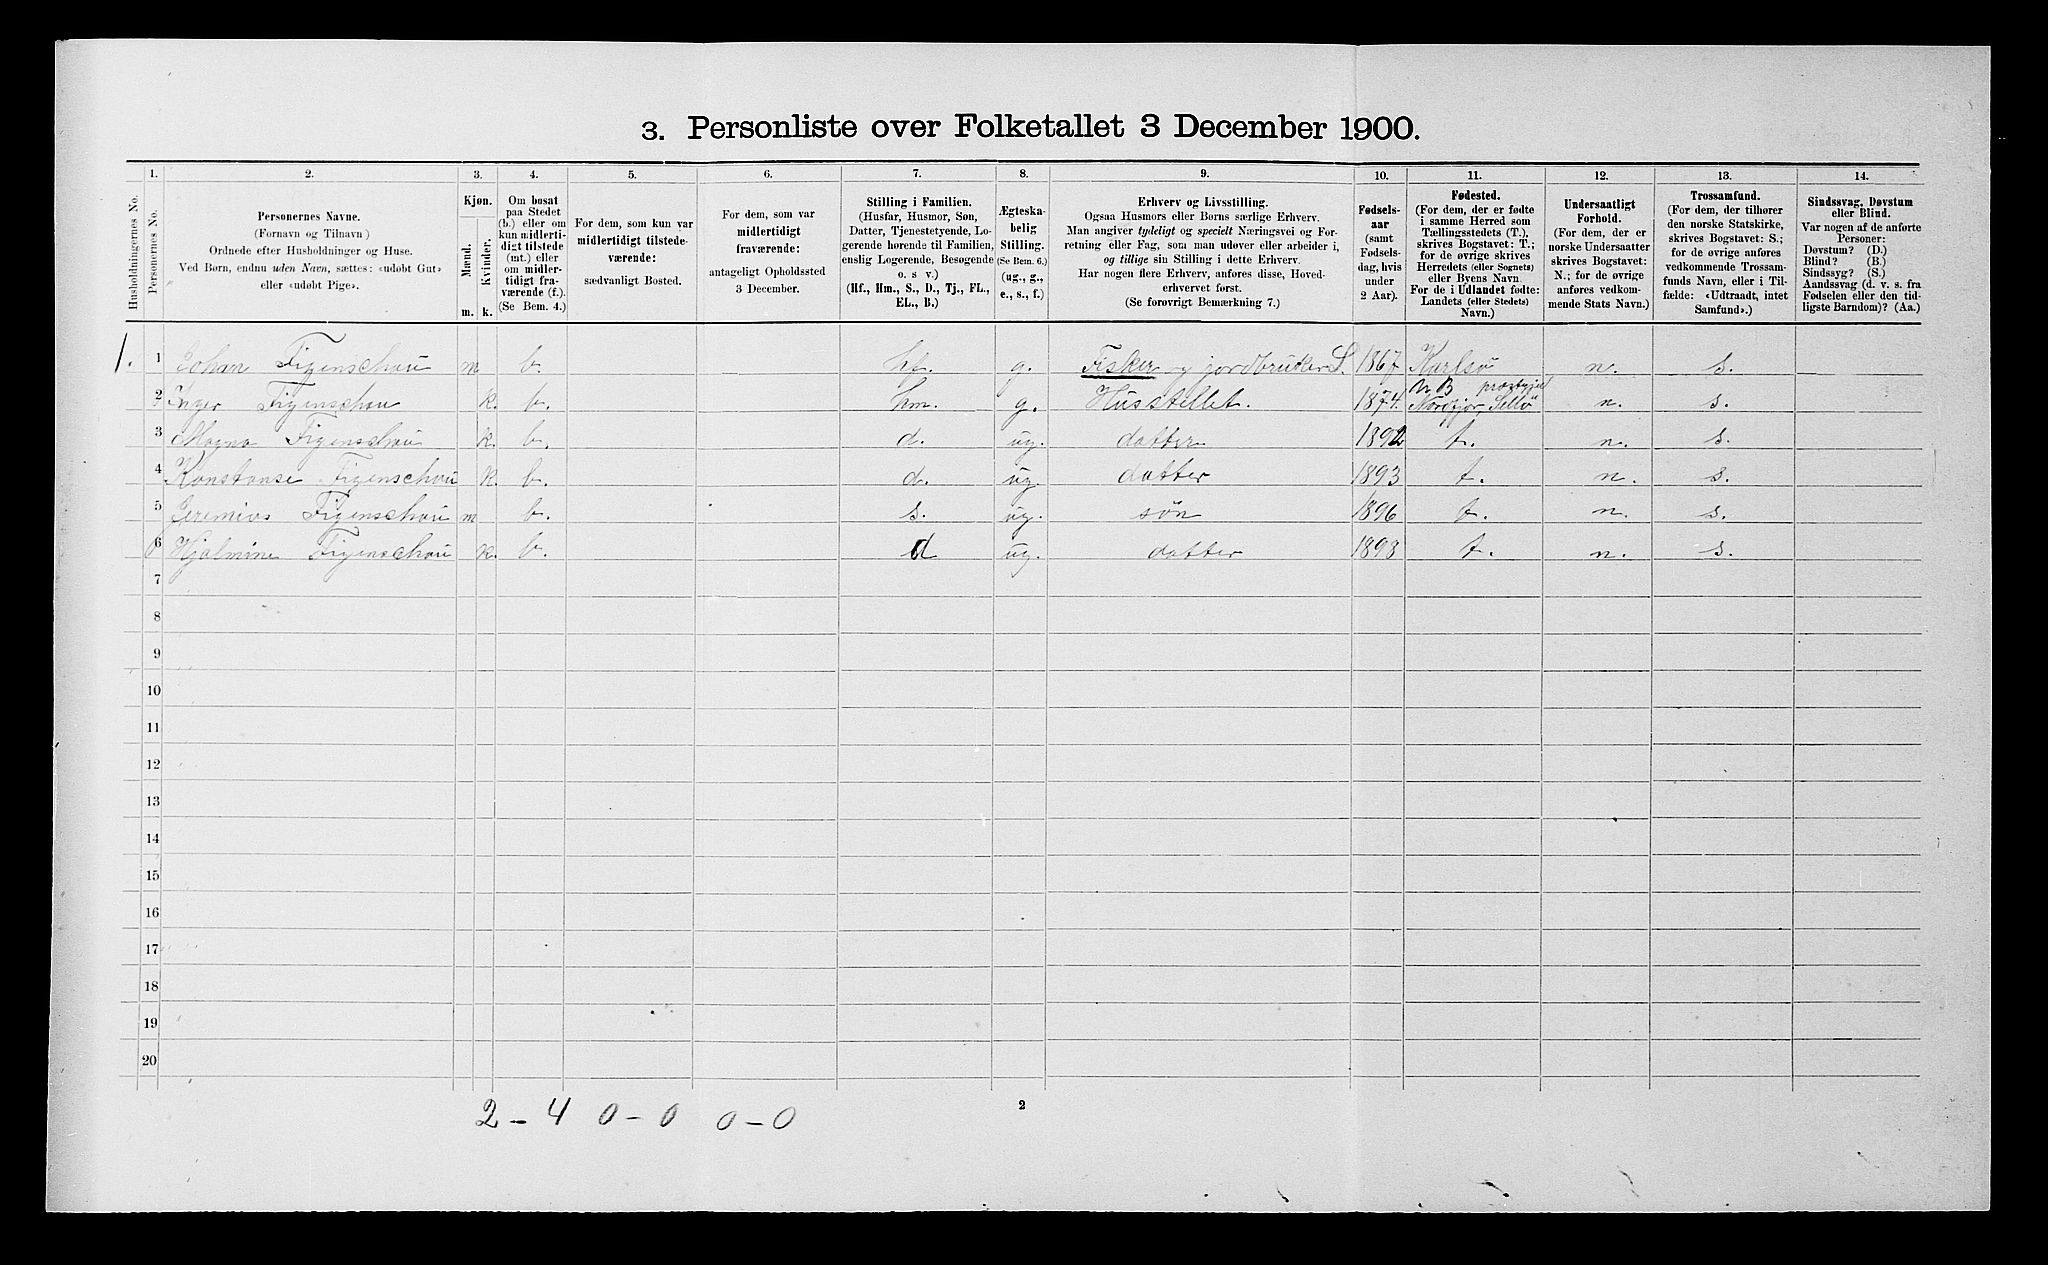 3. Personliste over Folketallet 3 December 1900.
1. 2. 3. 4. 5. 6. 7. 8. 9. 10. 11. 12. 13. 14.
Husholdningernes No.
Personernes No.
Personernes Navne.
(Fornavn og Tilnavn)
Ordnede efter Husholdninger og Huse.
Ved Børn, endnu uden Navn, sættes: «udøbt Gut»
eller «udøbt Pige».
Kjøn.
Mænd.
Kvinder.
m. k.
Om bosat
paa Stedet
(b.) eller om
kun midlerti-
digt tilstede
(mt.) eller
om midler-
tidigt fra-
værende (f.)
(Se Bem. 4.)
For dem, som kun var
midlertidigt tilstede-
værende:
sædvanligt Bosted.
For dem, som var
midlertidigt
fraværende:
antageligt Opholdssted
3 December.
Stilling i Familien.
(Husfar, Husmor, Søn,
Datter, Tjenestetyende, Lo-
gerende hørende til Familien,
enslig Logerende, Besøgende
o. s v.)
(Hf., Hm., S., D., Tj., FL.,
EL., B.)
Ægteska-
belig
Stilling.
(Se Bem. 6.)
(ug., g.,
e., s., f.)
Erhverv og Livsstilling.
Ogsaa Husmors eller Børns særlige Erhverv.
Man angiver tydeligt og specielt Næringsvei og For-
retning eller Fag, som man udøver eller arbeider i,
og tillige sin Stilling i dette Erhverv.
Har nogen flere Erhverv, anføres disse, Hoved-
erhvervet først.
(Se forøvrigt Bemærkning 7.)
Fødsels-
aar
(samt
Fødsels-
dag, hvis
under
2 Aar).
Fødested.
(For dem, der er fødte
i samme Herred som
Tællingsstedets (T.),
skrives Bogstavet: T.;
for de øvrige skrives
Herredets (eller Sognets)
eller Byens Navn.
For de i Udlandet fødte:
Landets (eller Stedets)
Navn.)
Undersaatligt
Forhold.
(For dem, der er
norske Undersaatter
skrives Bogstavet:
N.; for de øvrige
anføres vedkom-
mende Stats Navn.)
Trossamfund.
(For dem, der tilhører
den norske Statskirke,
skrives Bogstavet: S.;
for de øvrige anføres
vedkommende Trossam-
funds Navn, eller i Til-
fælde: «Udtraadt, intet
Samfund».)
Sindssvag, Døvstum
eller Blind.
Var nogen af de anførte
Personer:
Døvstum? (D.)
Blind? (B.)
Sindssyg? (S.)
Aandssvag (d. v. s. fra
Fødselen eller den tid-
ligste Barndom)? (Aa.)
1. 1 Johan Figenschou m b. hf. g. Fisker og jordbruker S. 1867 Karlsø n. s.
NB prestgjel
2 Inger Figenschou k. b. hm. g. Husstellet. 1874. Nordfjor, Sellø n. s.
3 Magna Figenschou k. b. d. ug. datter 1892 t. n. s.
4 Konstanse Figenschou k. b. d. ug. datter 1893 t. n. s.
5 Jeremias Figenschou m b. s. ug. søn 1896 t. n. s.
6 Hjalmine Figenschou k. b. d ug. datter 1898 t. n. s.
7
8
9
10
11
12
13
14
15
16
17
18
19
20
2 - 4 0 - 0 0 - 0
2